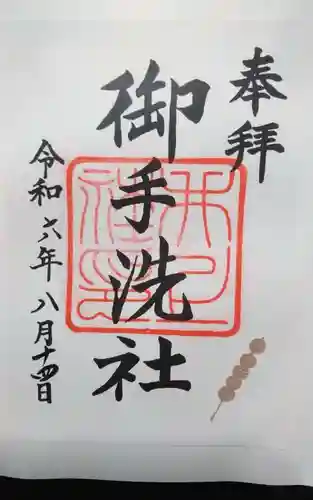 奉拝
御手洗社
令和六年八月十四日